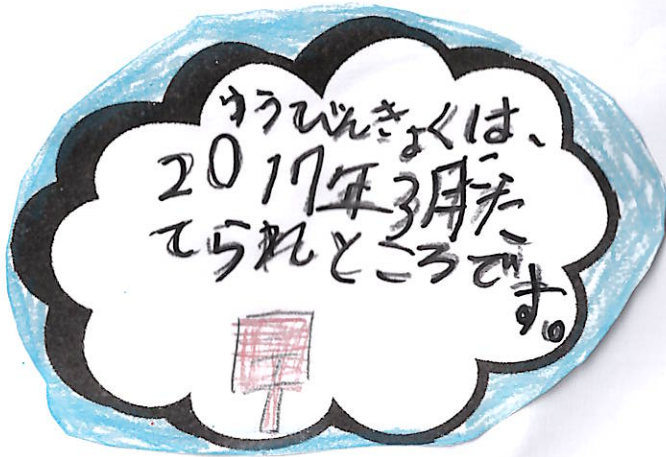 ゆうびんきょくは、
2017年3月にた
てられところで
す。